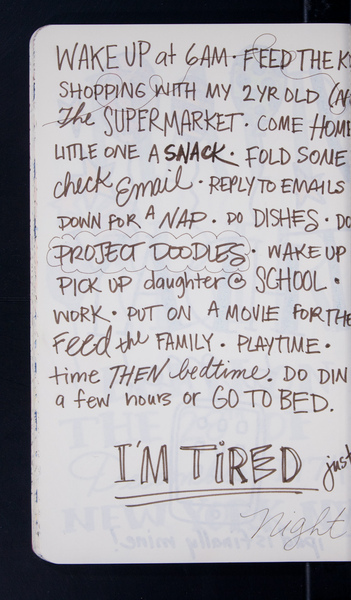 WAKE UP at 6AM · FEED THE
SHOPPING WITH MY 2YR OLD
The SUPERMARKET · COME HOME
LITTLE ONE A SNACK · FOLD SOME
check Email · REPLY TO EMAILS
DOWN FOR A NAP · DO DISHES · DO
PROJECT DOODLES · WAKE UP
PICK UP daughter @ SCHOOL ·
WORK · PUT ON A MOVIE FOR THE
Feed the FAMILY · PLAYTIME ·
time THEN bedtime. DO DIN
a few hours or GO TO BED.
I'M TIRED just
Night